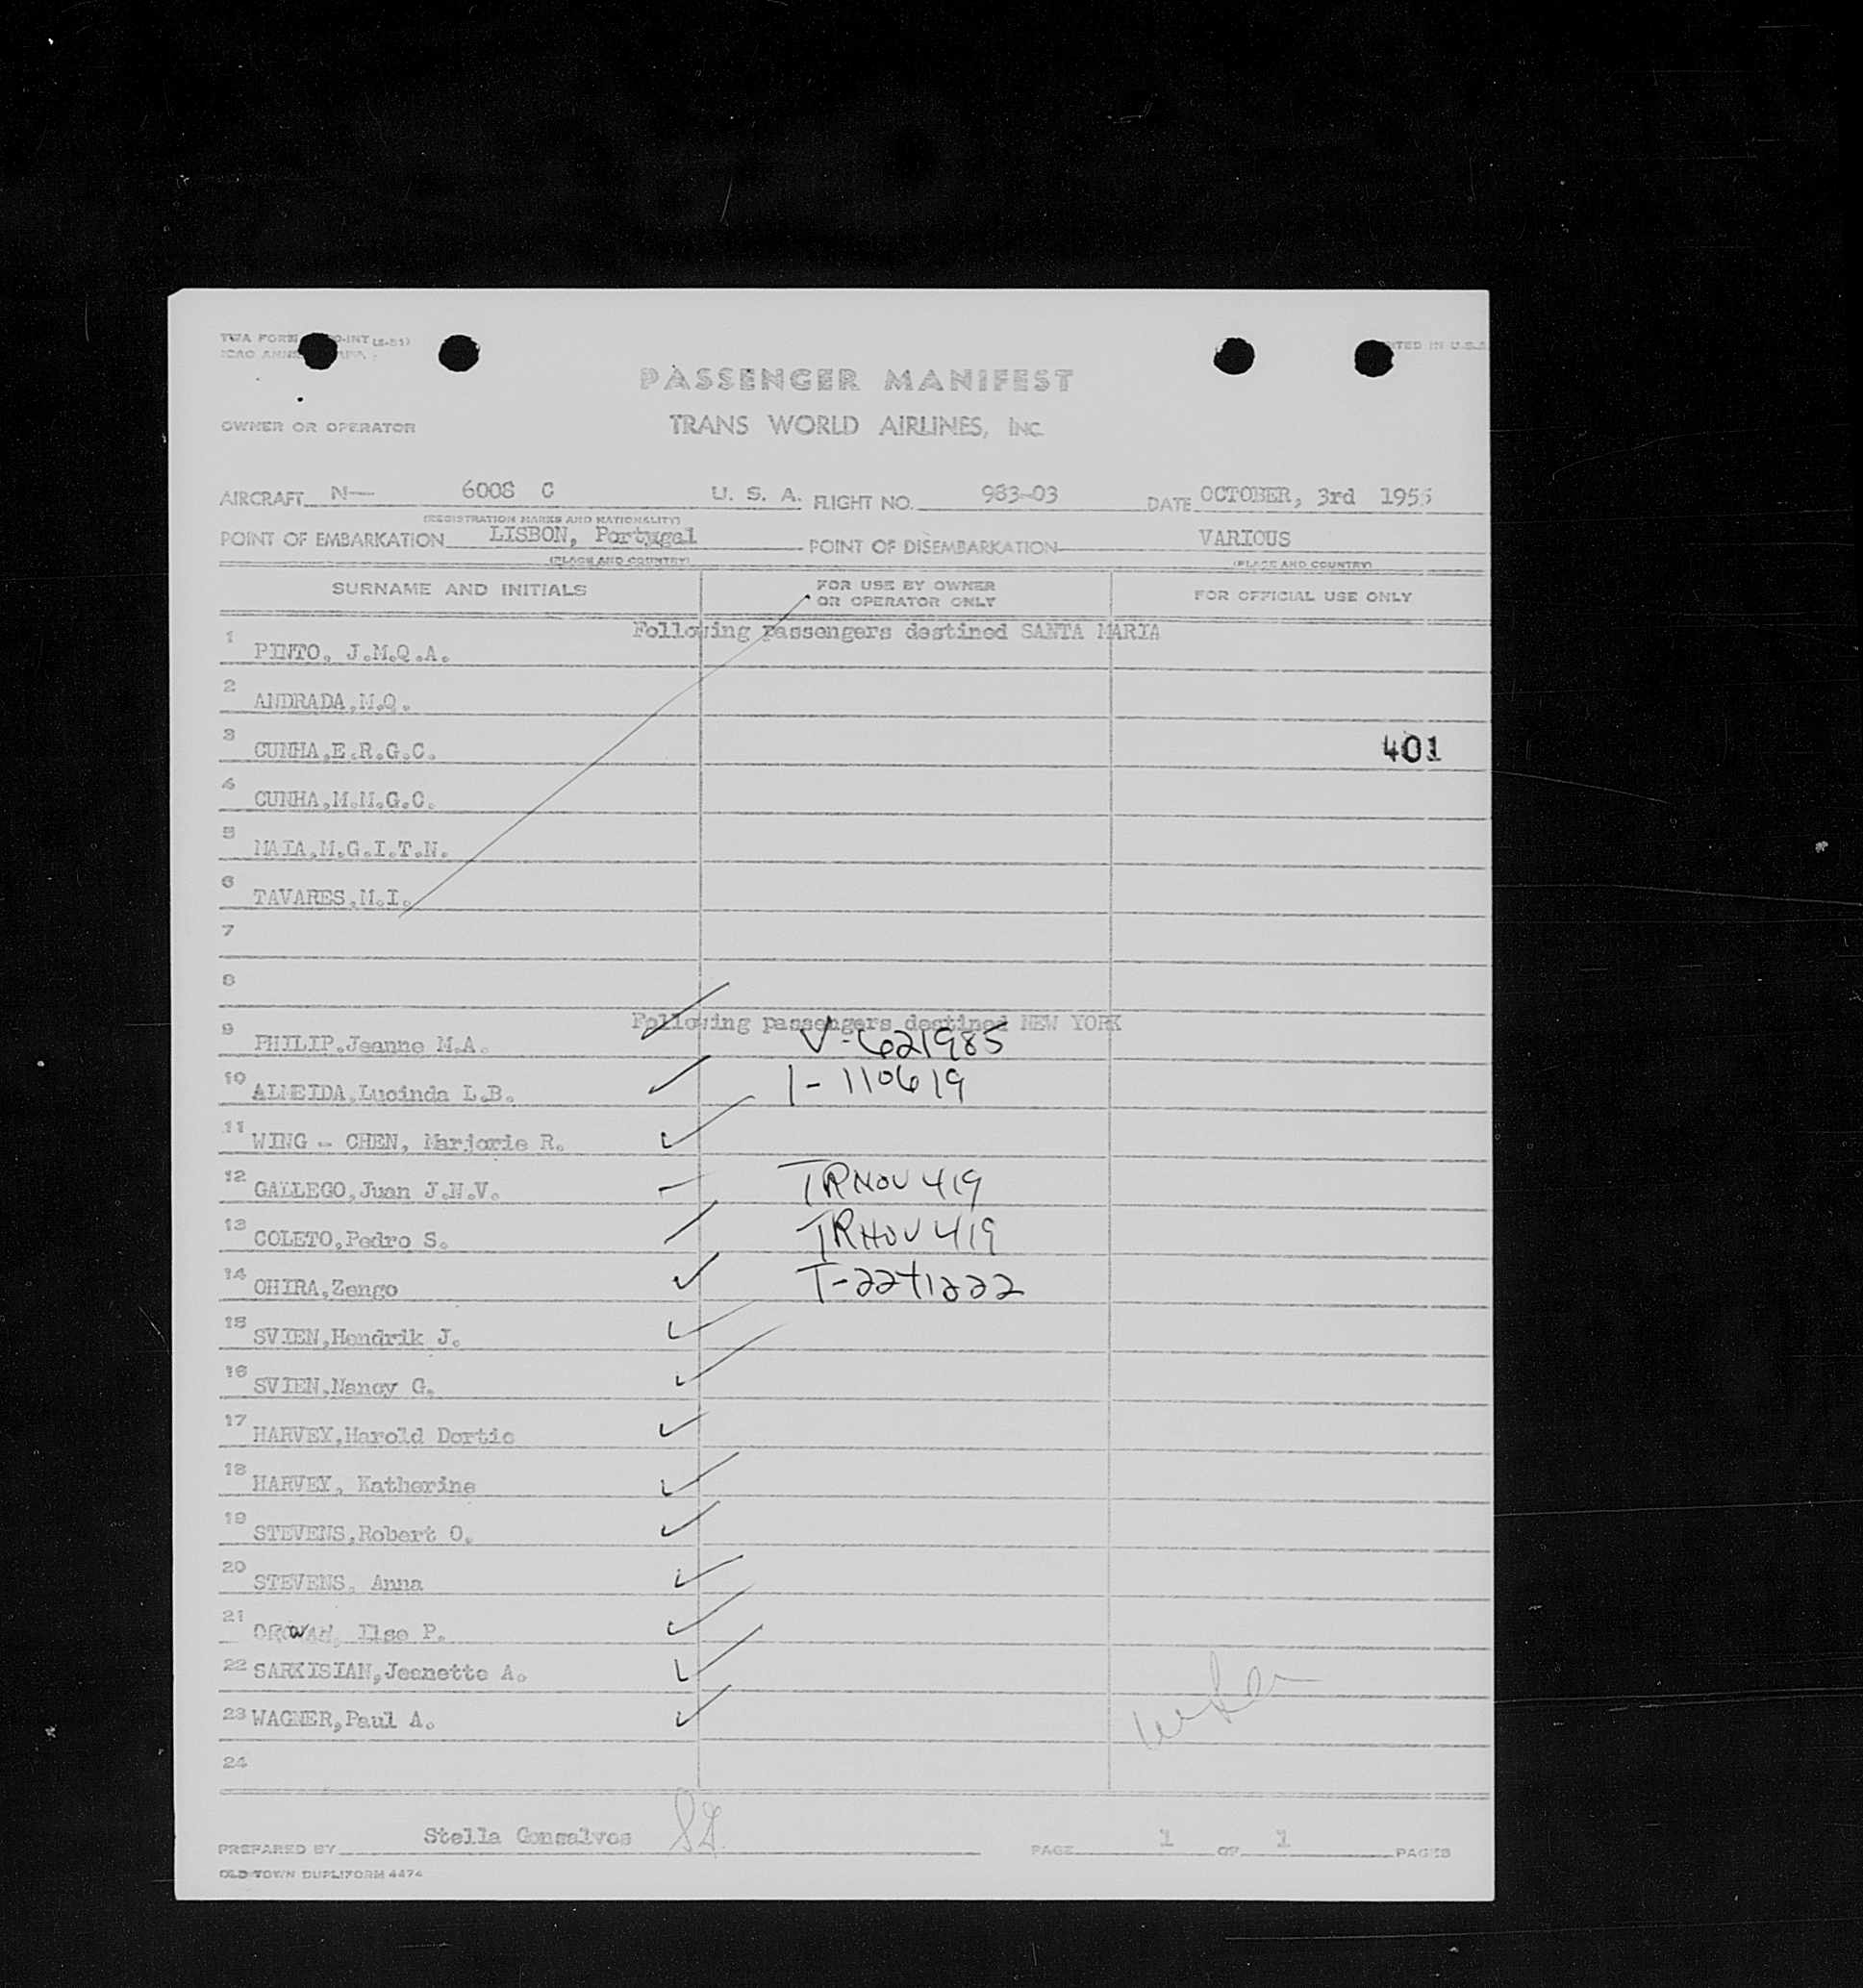 TWA FORM
PRINTED IN U.S.A.
PASSENGER MANIFEST
OWNER OR OPERATOR TRANS WORLD AIRLINES, INC.
AIRCRAFT N— 6008 C U. S. A. FLIGHT NO. 983-03 DATE OCTOBER, 3rd 1955
(REGISTRATION MARKS AND NATIONALITY)
POINT OF EMBARKATION LISBON, Portugal POINT OF DISEMBARKATION VARIOUS
(PLACE AND COUNTRY) (PLACE AND COUNTRY)
SURNAME AND INITIALS FOR USE BY OWNER OR OPERATOR ONLY FOR OFFICIAL USE ONLY
Following passengers destined SANTA MARIA
1 PINTO, J.M.Q.A.
2 ANDRADA,M.Q.
3 CUNHA,E.R.G.C. 401
4 CUNHA,M.M.G.C.
5 MAIA,M.G.I.T.N.
6 TAVARES,M.I.
7
8
Following passengers destined NEW YORK
9 PHILIP.Jeanne M.A. V-621985
10 ALMEIDA,Lucinda L.B. 1-110619
11 WING - CHEN, Marjorie R.
12 GALLEGO,Juan J.N.V. 419
13 COLETO,Pedro S. 419
14 OHIRA,Zengo T-2271222
15 SVIEN,Hendrik J.
16 SVIEN,Nancy G.
17 HARVEY,Harold Dortic
18 HARVEY, Katherine
19 STEVENS,Robert O.
20 STEVENS, Anna
21 OROWAN, Ilse P.
22 SARKISIAN,Jeanette A.
23 WAGNER,Paul A.
24
PREPARED BY Stella Gonsalves SG PAGE 1 OF 1 PAGES
OLD TOWN DUPLIFORM 4474